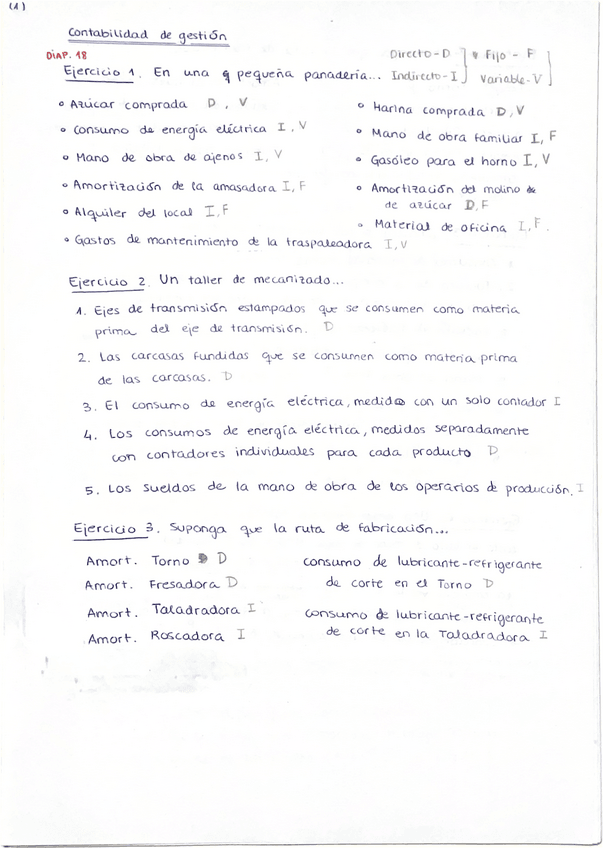 (1)
Contabilidad de gestión
DIAP. 18
Directo - D
Fijo - F
Ejercicio 1. En una pequeña panadería... Indirecto - I
Variable - V
• Azúcar comprada D, V
• Harina comprada D, V
• Consumo de energía eléctrica I, V
• Mano de obra familiar I, F
• Mano de obra de ajenos I, V
• Gasóleo para el horno I, V
• Amortización de la amasadora I, F
• Amortización del molino
de azúcar D, F
• Alquiler del local I, F
• Material de oficina I, F.
• Gastos de mantenimiento de la traspaleadora I, V
Ejercicio 2. Un taller de mecanizado...
1. Ejes de transmisión estampados que se consumen como materia
prima del eje de transmisión. D
2. Las carcasas fundidas que se consumen como materia prima
de las carcasas. D
3. El consumo de energía eléctrica, medido con un solo contador I
4. Los consumos de energía eléctrica, medidos separadamente
con contadores individuales para cada producto D
5. Los sueldos de la mano de obra de los operarios de producción. I
Ejercicio 3. Suponga que la ruta de fabricación...
Amort. Torno D
Amort. Fresadora D
Amort. Taladradora I
Amort. Roscadora I
consumo de lubricante-refrigerante
de corte en el Torno D
consumo de lubricante-refrigerante
de corte en la Taladradora I